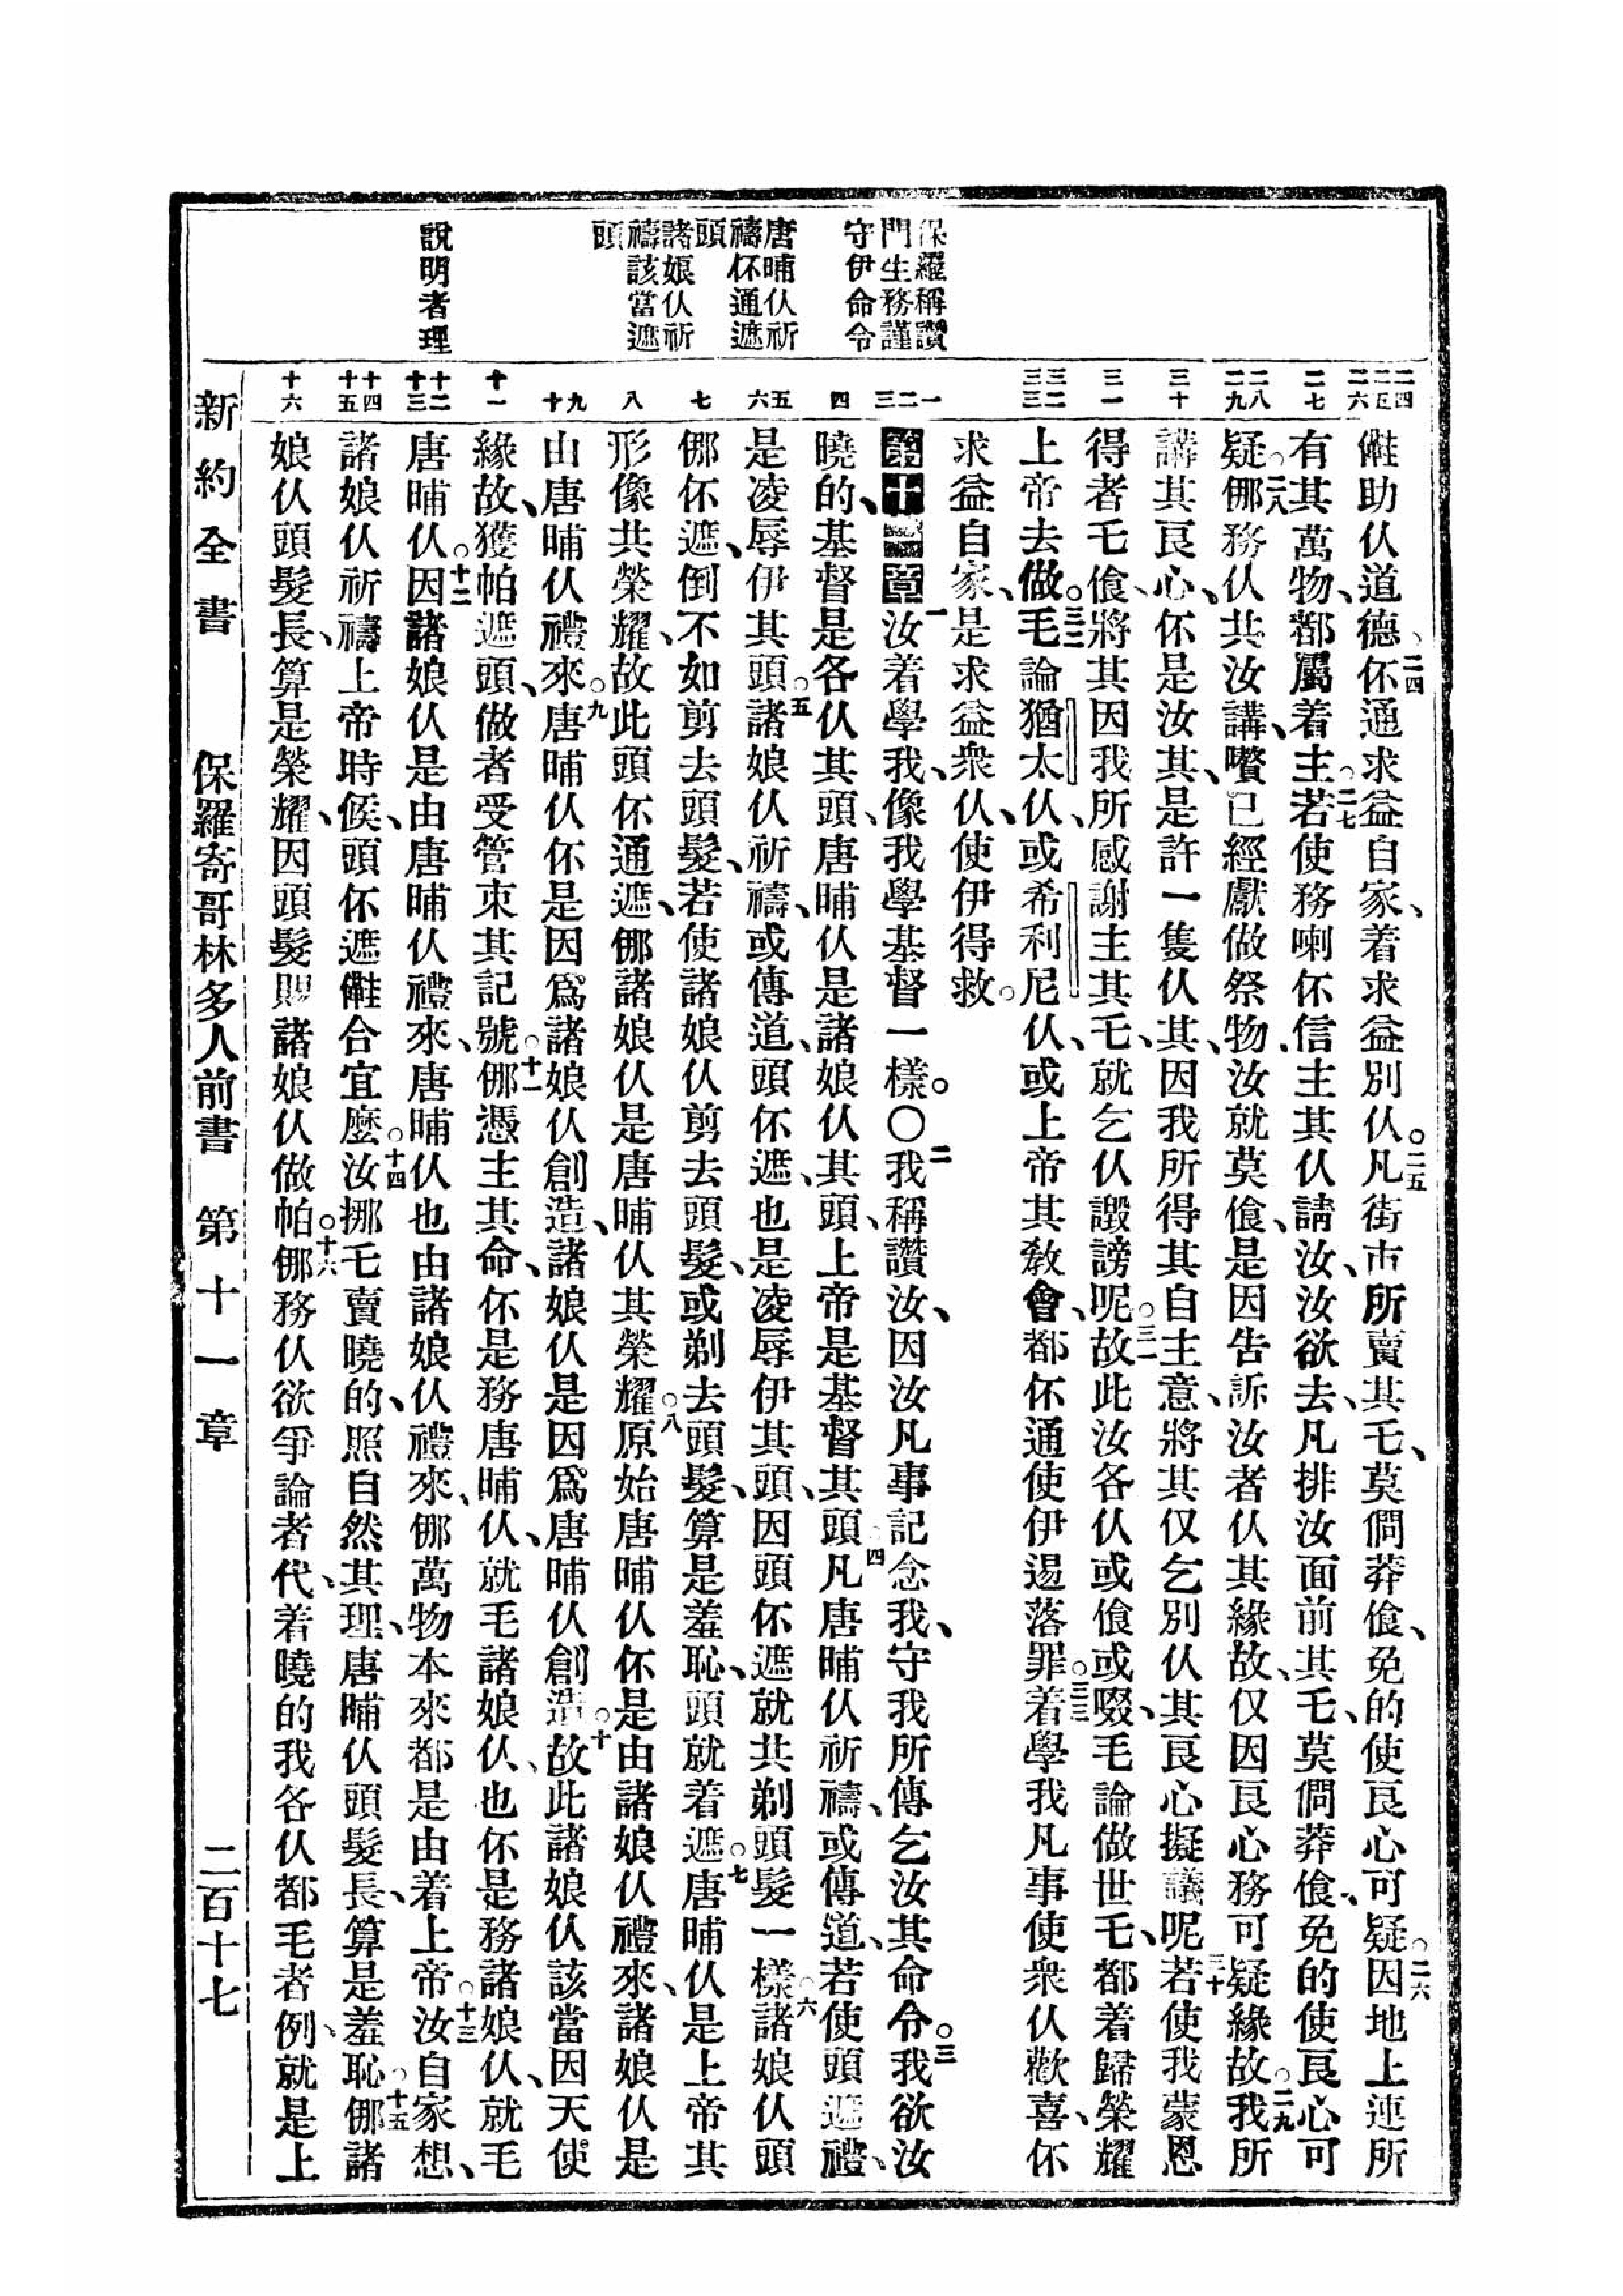 保羅稱讚
門生務謹
守伊命令
唐晡仈祈
禱伓通遮
頭
諸娘仈祈
禱該當遮
頭
說明者理
二四
二五
二六
二七
二八
二九
三十
三一
三二
三三
一
二
三
四
五
六
七
八
九
十
十一
十二
十三
十四
十五
十六
助仈道德、二四伓通求益自家、着求益別仈。二五凡街市所賣其乇、莫僩莽飡、免的使良心可疑。二六因地上連所
有其萬物、都屬着主。二七若使務喇伓信主其仈請汝、汝欲去、凡排汝面前其乇、莫僩莽飡、免的使良心可
疑。二八㑚務仈共汝講、囋已經獻做祭物、汝就莫飡、是因告訴汝者仈其緣故、仅因良心務可疑緣故。二九我所
講其良心、伓是汝其、是許一隻仈其、因我所得其自主意、將其仅乞別仈其良心擬議呢。三十若使我蒙恩
得者乇飡、將其因我所感謝主其乇、就乞仈譭謗呢。三一故此汝各仈或飡或啜、毛論做世乇、都着歸榮耀
上帝去做。三二毛論猶太仈、或希利尼仈、或上帝其教會、都伓通使伊逿落罪。三三着學我凡事使衆仈歡喜、伓
求益自家、是求益衆仈、使伊得救。
第十一章一汝着學我、像我學基督一樣。〇二我稱讚汝、因汝凡事記念我、守我所傳乞汝其命令。三我欲汝
曉的、基督是各仈其頭、唐晡仈是諸娘仈其頭、上帝是基督其頭。四凡唐晡仈祈禱、或傳道、若使頭遮禮、
是凌辱伊其頭。五諸娘仈祈禱、或傳道、頭伓遮、也是凌辱伊其頭、因頭伓遮就共剃頭髮一樣。六諸娘仈頭
㑚伓遮、倒不如剪去頭髮、若使諸娘仈剪去頭髮、或剃去頭髮、算是羞恥、頭就着遮。七唐晡仈是上帝其
形像共榮耀、故此頭伓通遮、㑚諸娘仈是唐晡仈其榮耀。八原始唐晡仈伓是由諸娘仈禮來、諸娘仈是
由唐晡仈禮來。九唐晡仈伓是因爲諸娘仈創造、諸娘仈是因爲唐晡仈創造。十故此諸娘仈該當因天使
緣故、獲帕遮頭、做者受管束其記號。十一㑚憑主其命、伓是務唐晡仈、就毛諸娘仈、也伓是務諸娘仈、就毛
唐晡仈。十二因諸娘仈是由唐晡仈禮來、唐晡仈也由諸娘仈禮來、㑚萬物本來都是由着上帝。十三汝自家想、
諸娘仈祈禱上帝時候、頭伓遮合宜麽。十四汝挪乇賣曉的、照自然其理、唐晡仈頭髮長、算是羞恥。十五㑚諸
娘仈頭髮長、算是榮耀、因頭髮賜諸娘仈做帕。十六㑚務仈欲爭論者代、着曉的我各仈都毛者例、就是上
新約全書 保羅寄哥林多人前書 第十一章 二百十七